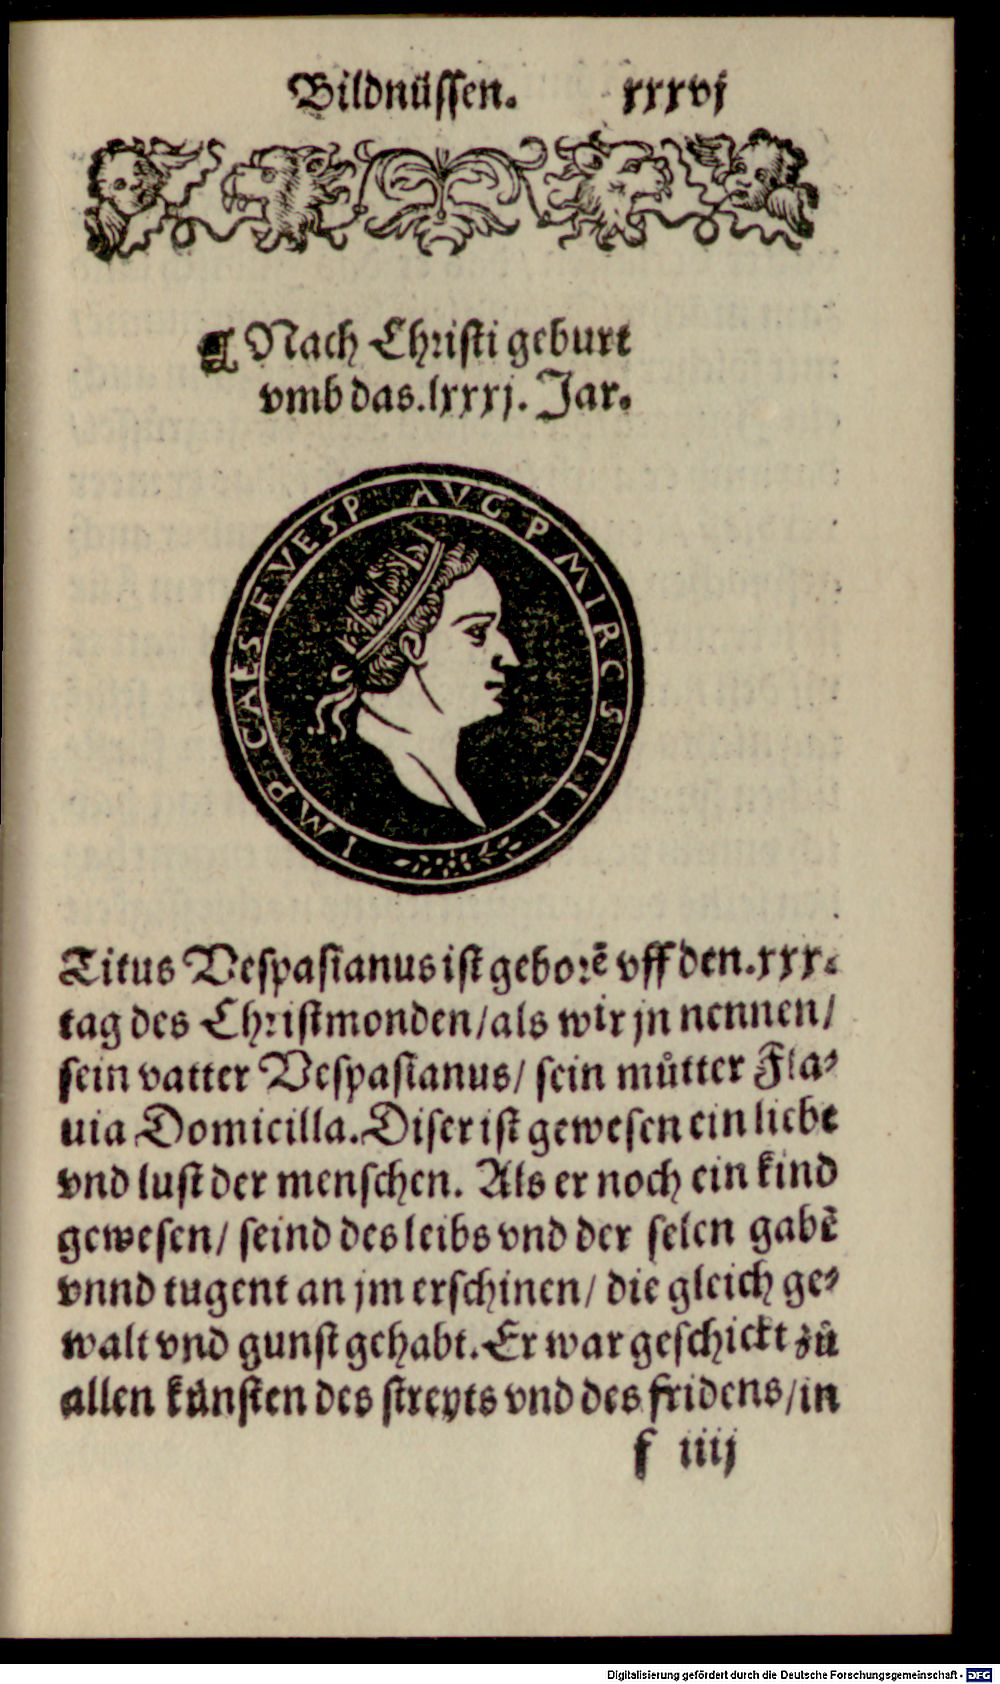 Bildnüſſen. xxxvj
¶ Nach Chꝛiſti geburt
vmb das.lxxxj. Jar.
IMP CAES F VESP AVG P M IRCS III
Titus Veſpaſianus iſt geboꝛē vff den.xxx.
tag des Chꝛiſtmonden/als wir jn nennen/
ſein vatter Veſpaſianus/ ſein můtter Fla⸗
uia Domicilla.Diſer iſt geweſen ein liebe
vnd luſt der menſchen. Als er noch ein kind
geweſen/ ſeind des leibs vnd der ſelen gabē
vnnd tugent an jm erſchinen/ die gleich ge⸗
walt vnd gunſt gehabt. Er war geſchickt zů
allen künſten des ſtreyts vnd des fridens/in
f iiij
Digitalisierung gefördert durch die Deutsche Forschungsgemeinschaft - DFG